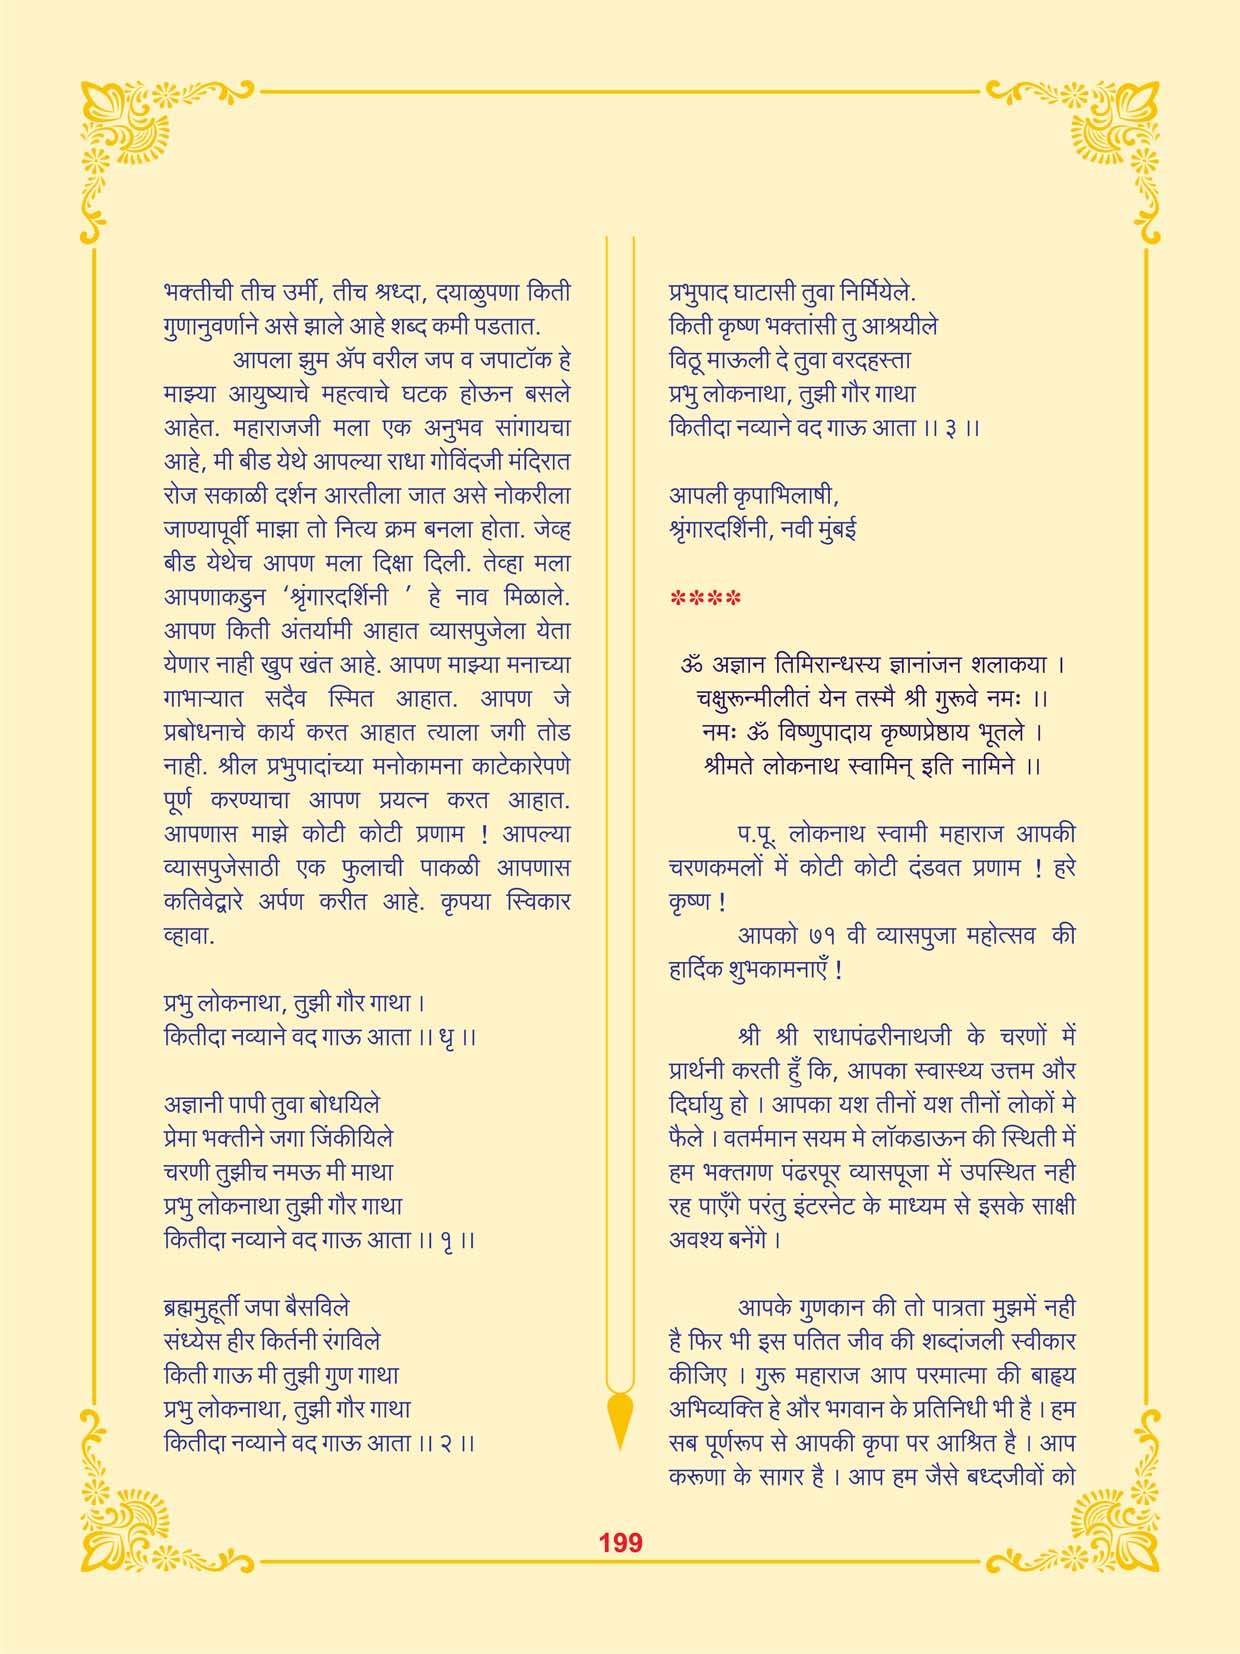 भक्तीची तीच उर्मी, तीच श्रध्दा, दयाळुपणा किती
गुणानुवर्णाने असे झाले आहे शब्द कमी पडतात.
आपला झुम ॲप वरील जप व जपाटॉक हे
माझ्या आयुष्याचे महत्वाचे घटक होऊन बसले
आहेत. महाराजजी मला एक अनुभव सांगायचा
आहे, मी बीड येथे आपल्या राधा गोविंदजी मंदिरात
रोज सकाळी दर्शन आरतीला जात असे नोकरीला
जाण्यापूर्वी माझा तो नित्य क्रम बनला होता. जेव्ह
बीड येथेच आपण मला दिक्षा दिली. तेव्हा मला
आपणाकडुन ‘श्रृंगारदर्शिनी ’ हे नाव मिळाले.
आपण किती अंतर्यामी आहात व्यासपुजेला येता
येणार नाही खुप खंत आहे. आपण माझ्या मनाच्या
गाभाऱ्यात सदैव स्मित आहात. आपण जे
प्रबोधनाचे कार्य करत आहात त्याला जगी तोड
नाही. श्रील प्रभुपादांच्या मनोकामना काटेकारेपणे
पूर्ण करण्याचा आपण प्रयत्न करत आहात.
आपणास माझे कोटी कोटी प्रणाम ! आपल्या
व्यासपुजेसाठी एक फुलाची पाकळी आपणास
कतिवेद्वारे अर्पण करीत आहे. कृपया स्विकार
व्हावा.
प्रभु लोकनाथा, तुझी गौर गाथा ।
कितीदा नव्याने वद गाऊ आता ।। धृ ।।
अज्ञानी पापी तुवा बोधयिले
प्रेमा भक्तीने जगा जिंकीयिले
चरणी तुझीच नमऊ मी माथा
प्रभु लोकनाथा तुझी गौर गाथा
कितीदा नव्याने वद गाऊ आता ।। १ ।।
ब्रह्ममुहूर्ती जपा बैसविले
संध्येस हीर किर्तनी रंगविले
किती गाऊ मी तुझी गुण गाथा
प्रभु लोकनाथा, तुझी गौर गाथा
कितीदा नव्याने वद गाऊ आता ।। २ ।।
प्रभुपाद घाटासी तुवा निर्मियेले.
किती कृष्ण भक्तांसी तु आश्रयीले
विठू माऊली दे तुवा वरदहस्ता
प्रभु लोकनाथा, तुझी गौर गाथा
कितीदा नव्याने वद गाऊ आता ।। ३ ।।
आपली कृपाभिलाषी,
श्रृंगारदर्शिनी, नवी मुंबई
****
ॐ अज्ञान तिमिरान्धस्य ज्ञानांजन शलाकया ।
चक्षुरून्मीलीतं येन तस्मै श्री गुरूवे नमः ।।
नमः ॐ विष्णुपादाय कृष्णप्रेष्ठाय भूतले ।
श्रीमते लोकनाथ स्वामिन् इति नामिने ।।
प.पू. लोकनाथ स्वामी महाराज आपकी
चरणकमलों में कोटी कोटी दंडवत प्रणाम ! हरे
कृष्ण !
आपको ७१ वी व्यासपुजा महोत्सव की
हार्दिक शुभकामनाएँ !
श्री श्री राधापंढरीनाथजी के चरणों में
प्रार्थनी करती हुँ कि, आपका स्वास्थ्य उत्तम और
दिर्घायु हो । आपका यश तीनों यश तीनों लोकों मे
फैले । वतर्ममान सयम मे लॉकडाऊन की स्थिती में
हम भक्तगण पंढरपूर व्यासपूजा में उपस्थित नही
रह पाएँगे परंतु इंटरनेट के माध्यम से इसके साक्षी
अवश्य बनेंगे ।
आपके गुणकान की तो पात्रता मुझमें नही
है फिर भी इस पतित जीव की शब्दांजली स्वीकार
कीजिए । गुरू महाराज आप परमात्मा की बाहृय
अभिव्यक्ति हे और भगवान के प्रतिनिधी भी है । हम
सब पूर्णरूप से आपकी कृपा पर आश्रित है । आप
करूणा के सागर है । आप हम जैसे बध्दजीवों को
199